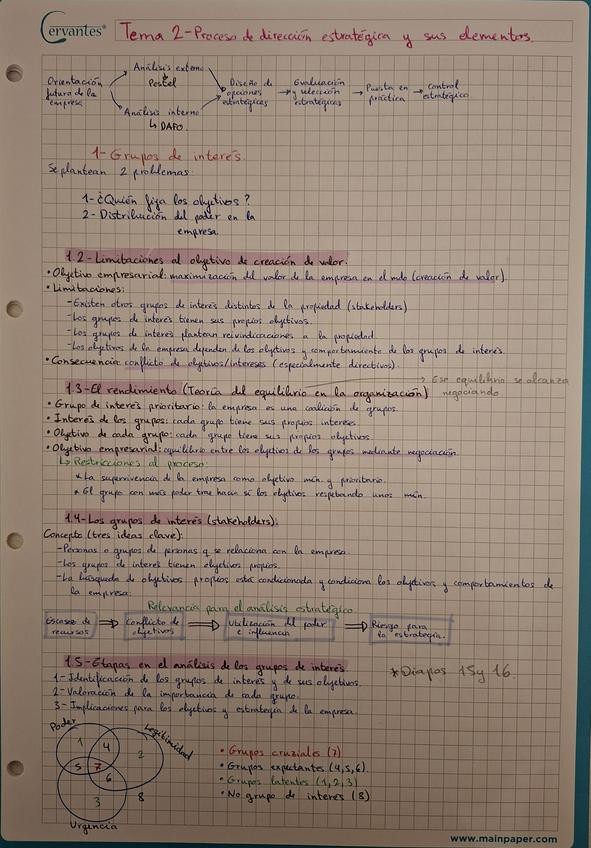 Cervantes®
Tema 2-Proceso de dirección estratégica y sus elementos.
Orientación futuro de la empresa
Análisis externo
Pestel
Análisis interno
↳ DAFO.
Diseño de opciones estratégicas
Evaluación y selección estratégicas
Puesta en práctica
Control estratégico
1-Grupos de interés.
Se plantean 2 problemas:
1- ¿Quién fija los objetivos?
2- Distribución del poder en la
empresa.
1.2-Limitaciones al objetivo de creación de valor.
• Objetivo empresarial: maximización del valor de la empresa en el mdo (creación de valor).
• Limitaciones:
-Existen otros grupos de interés distintos de la propiedad (stakeholders)
-Los grupos de interés tienen sus propios objetivos.
-Los grupos de interés plantean reivindicaciones a la propiedad.
-Los objetivos de la empresa dependen de los objetivos y comportamiento de los grupos de interés.
• Consecuencia: conflicto de objetivos/intereses (especialmente directivos).
1.3-El rendimiento (Teoría del equilibrio en la organización)
→ Ese equilibrio se alcanza
negociando
• Grupo de interés prioritario: la empresa es una coalición de grupos.
• Interés de los grupos: cada grupo tiene sus propios intereses.
• Objetivo de cada grupo: cada grupo tiene sus propios objetivos.
• Objetivo empresarial: equilibrio entre los objetivos de los grupos mediante negociación.
↳ Restricciones al proceso:
* La supervivencia de la empresa como objetivo mín. y prioritario.
* El grupo con más poder trae hacia sí los objetivos respetando unos mín.
1.4-Los grupos de interés (stakeholders):
Concepto (tres ideas clave):
-Personas o grupos de personas q se relaciona con la empresa.
-Los grupos de interés tienen objetivos propios.
-La búsqueda de objetivos propios está condicionada y condiciona los objetivos y comportamientos de
la empresa:
Relevancia para el análisis estratégico
Escasez de recursos
Conflicto de objetivos
Utilización del poder e influencia
Riesgo para la estrategia.
1.5-Etapas en el análisis de los grupos de interés.
* Diapos 15 y 16.
1- Identificación de los grupos de interés y de sus objetivos.
2- Valoración de la importancia de cada grupo.
3- Implicaciones para los objetivos y estrategia de la empresa.
Poder
Legitimidad
1
4
2
5
7
6
3
8
Urgencia
• Grupos cruciales (7)
• Grupos expectantes (4,5,6).
• Grupos latentes (1,2,3)
• No grupo de interés (8)
www.mainpaper.com